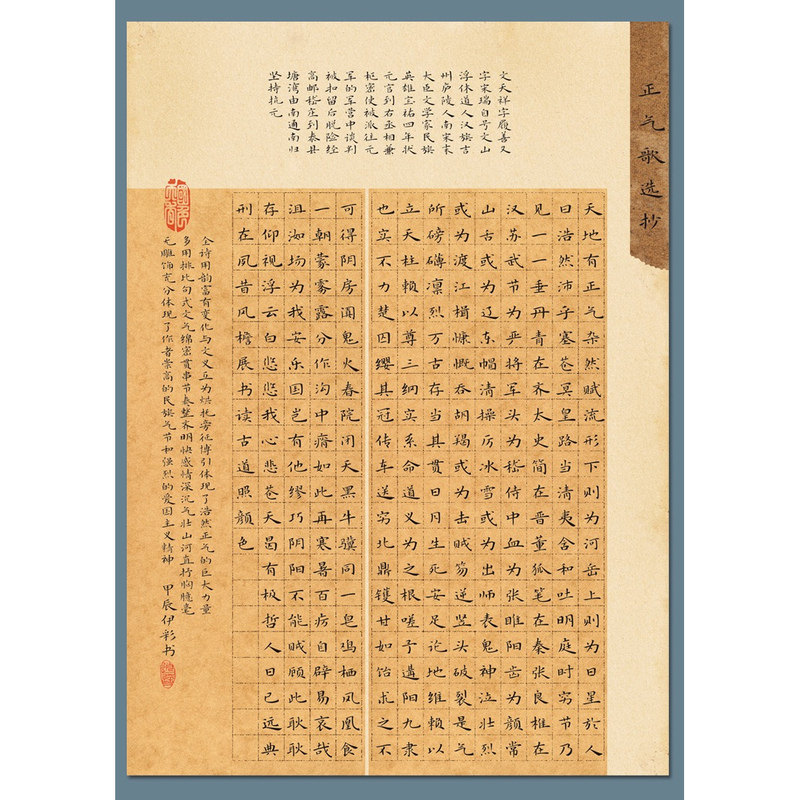 正气歌选抄
文天祥字履善又
字宋瑞自号文山
浮休道人汉族吉
州庐陵人南宋末
大臣文学家民族
英雄宝祐四年状
元官到右丞相兼
枢密使被派往元
军的军营中谈判
被扣留后脱险经
高邮嵇庄到泰县
塘湾由南通南归
坚持抗元
天地有正气杂然赋流形下则为河岳上则为日星於人
曰浩然沛乎塞苍冥皇路当清夷含和吐明庭时穷节乃
见一一垂丹青在齐太史简在晋董狐笔在秦张良椎在
汉苏武节为严将军头为嵇侍中血为张睢阳齿为颜常
山舌或为辽东帽清操厉冰雪或为出师表鬼神泣壮烈
或为渡江楫慷慨吞胡羯或为击贼笏逆竖头破裂是气
所磅礴凛烈万古存当其贯日月生死安足论地维赖以
立天柱赖以尊三纲实系命道义为之根嗟予遘阳九隶
也实不力楚囚缨其冠传车送穷北鼎镬甘如饴求之不
可得阴房阒鬼火春院闭天黑牛骥同一皂鸡栖凤凰食
一朝蒙雾露分作沟中瘠如此再寒暑百疠自辟易哀哉
沮洳场为我安乐国岂有他缪巧阴阳不能贼顾此耿耿
存仰视浮云白悠悠我心悲苍天曷有极哲人日已远典
刑在夙昔风檐展书读古道照颜色
全诗用韵富有变化与文义互为烘托旁征博引体现了浩然正气的巨大力量
多用排比句式文气绵密贯串节奏整齐明快感情深沉气壮山河直抒胸臆毫
无雕饰充分体现了作者崇高的民族气节和强烈的爱国主义精神 甲辰伊彩书